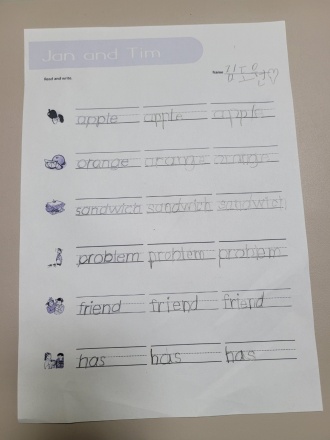 Jan and Tim
Read and write.
Name:
apple apple apple
orange orange orange
sandwich sandwich sandwich
problem problem problem
friend friend friend
has has has